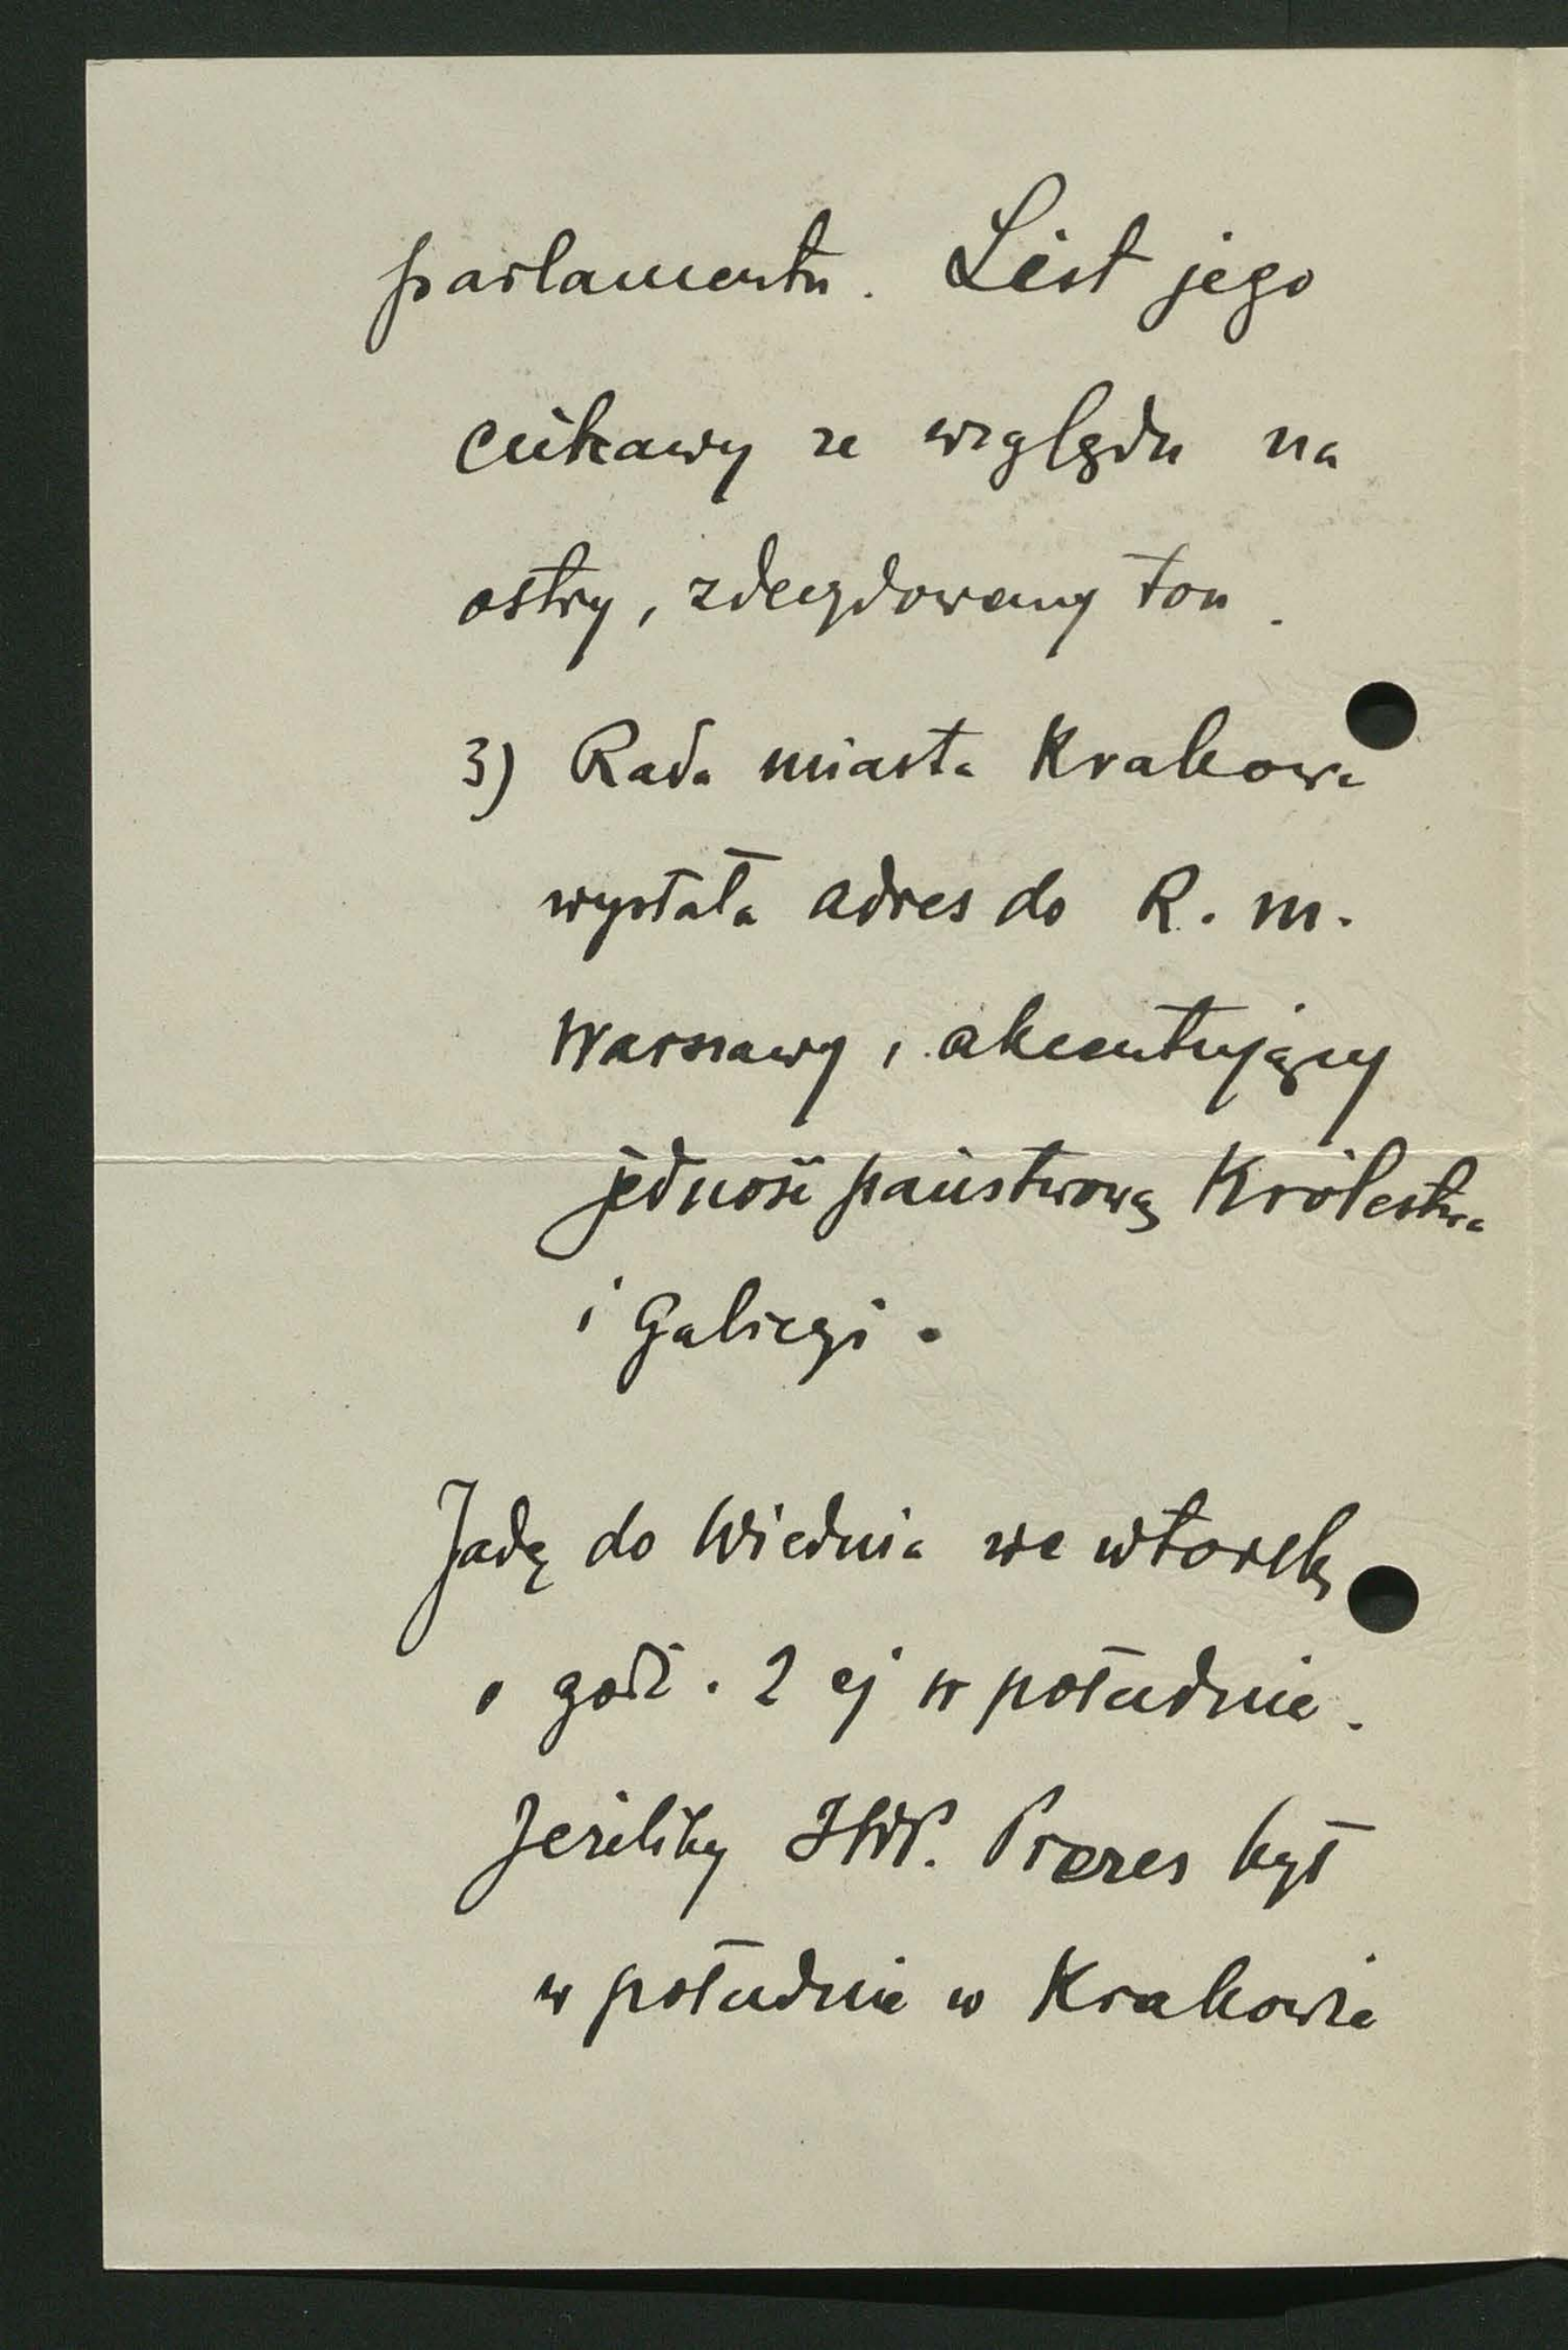 parlamentu. List jego
ciekawy ze względu na
ostry, zdecydowany ton.
3) Rada miasta Krakowa
wysłała adres do R. m.
Warszawy, akcentujący
jedność państwową Królestwa
i Galicyi.
Jadę do Wiednia we wtorek
o godz. 2 ej w południe.
Jeżeliby JWP. Prezes był
w południe w Krakowie